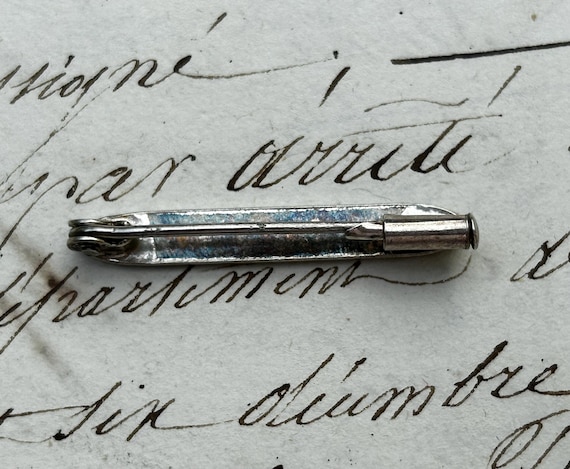 signé
par arrêté
département
six décembre